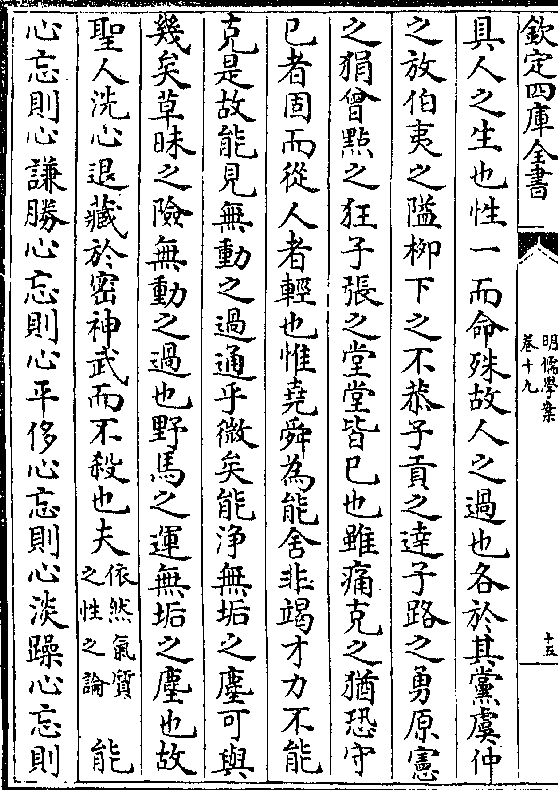 欽定四庫全書
明儒學案
卷十九
十五
具人之生也性一而命殊故人之過也各於其黨虞仲
之放伯夷之隘桺下之不恭子貢之達子路之勇原憲
之狷曾㸃之狂子張之堂堂皆已也雖痛克之猶恐守
已者固而從人者輕也惟堯舜為能舍非竭才力不能
克是故能見無動之過通乎微矣能淨無垢之塵可與
幾矣草昧之險無動之過也野馬之運無垢之塵也故
聖人洗心退藏於密神武而不殺也夫依然氣質之性之論能
心忘則心謙勝心忘則心平侈心忘則心淡躁心忘則